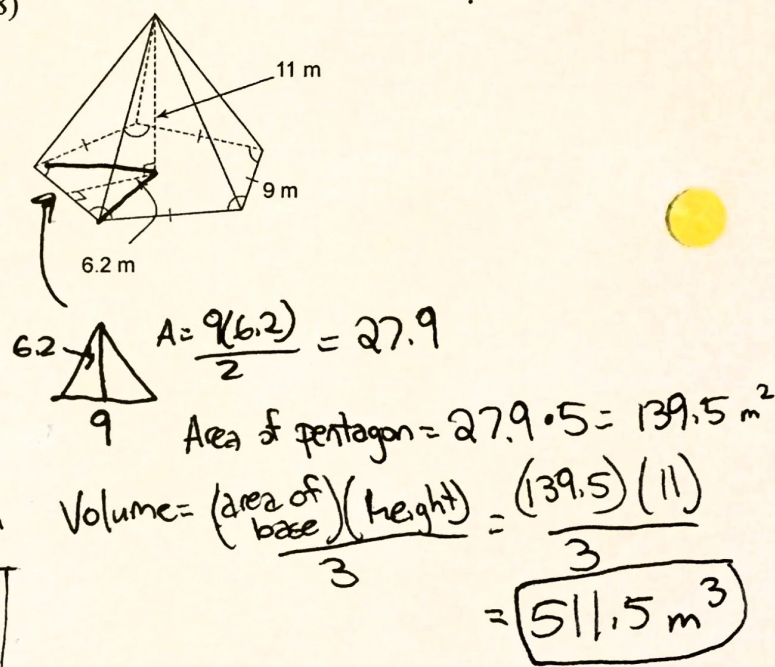 8)
11 m
9 m
6.2 m
6.2
9
A = 9(6.2) / 2 = 27.9
Area of pentagon = 27.9 • 5 = 139.5 m²
Volume = (area of base)(height) / 3 = (139.5)(11) / 3
= 511.5 m³